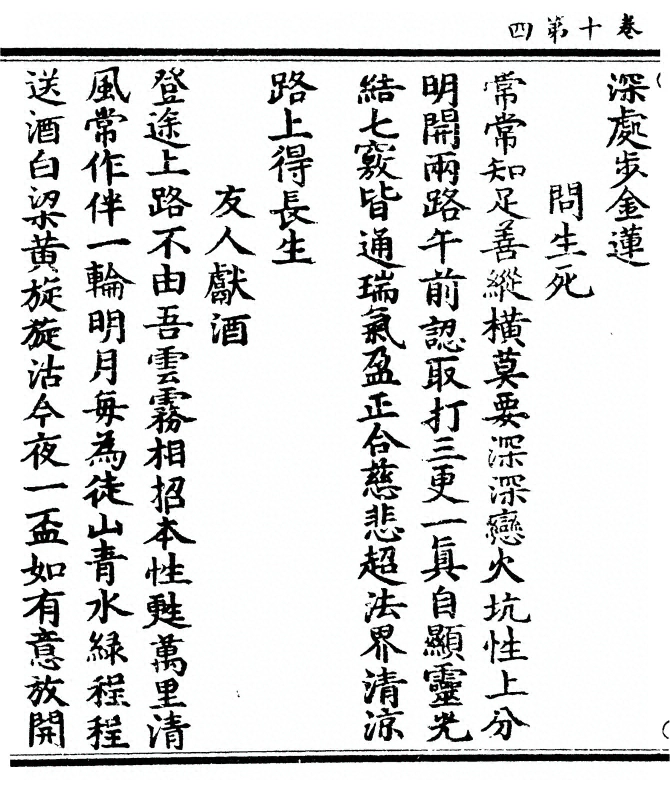 卷十第四
深處步金蓮
問生死
常常知足善縱橫莫要深深戀火坑性上分
明開兩路午前認取打三更一眞自顯靈光
結七竅皆通瑞氣盈正合慈悲超法界清涼
路上得長生
友人獻酒
登途上路不由吾雲霧相招本性甦萬里清
風常作伴一輪明月每為徒山青水緑程程
送酒白梁黃旋旋沽今夜一盃如有意放開